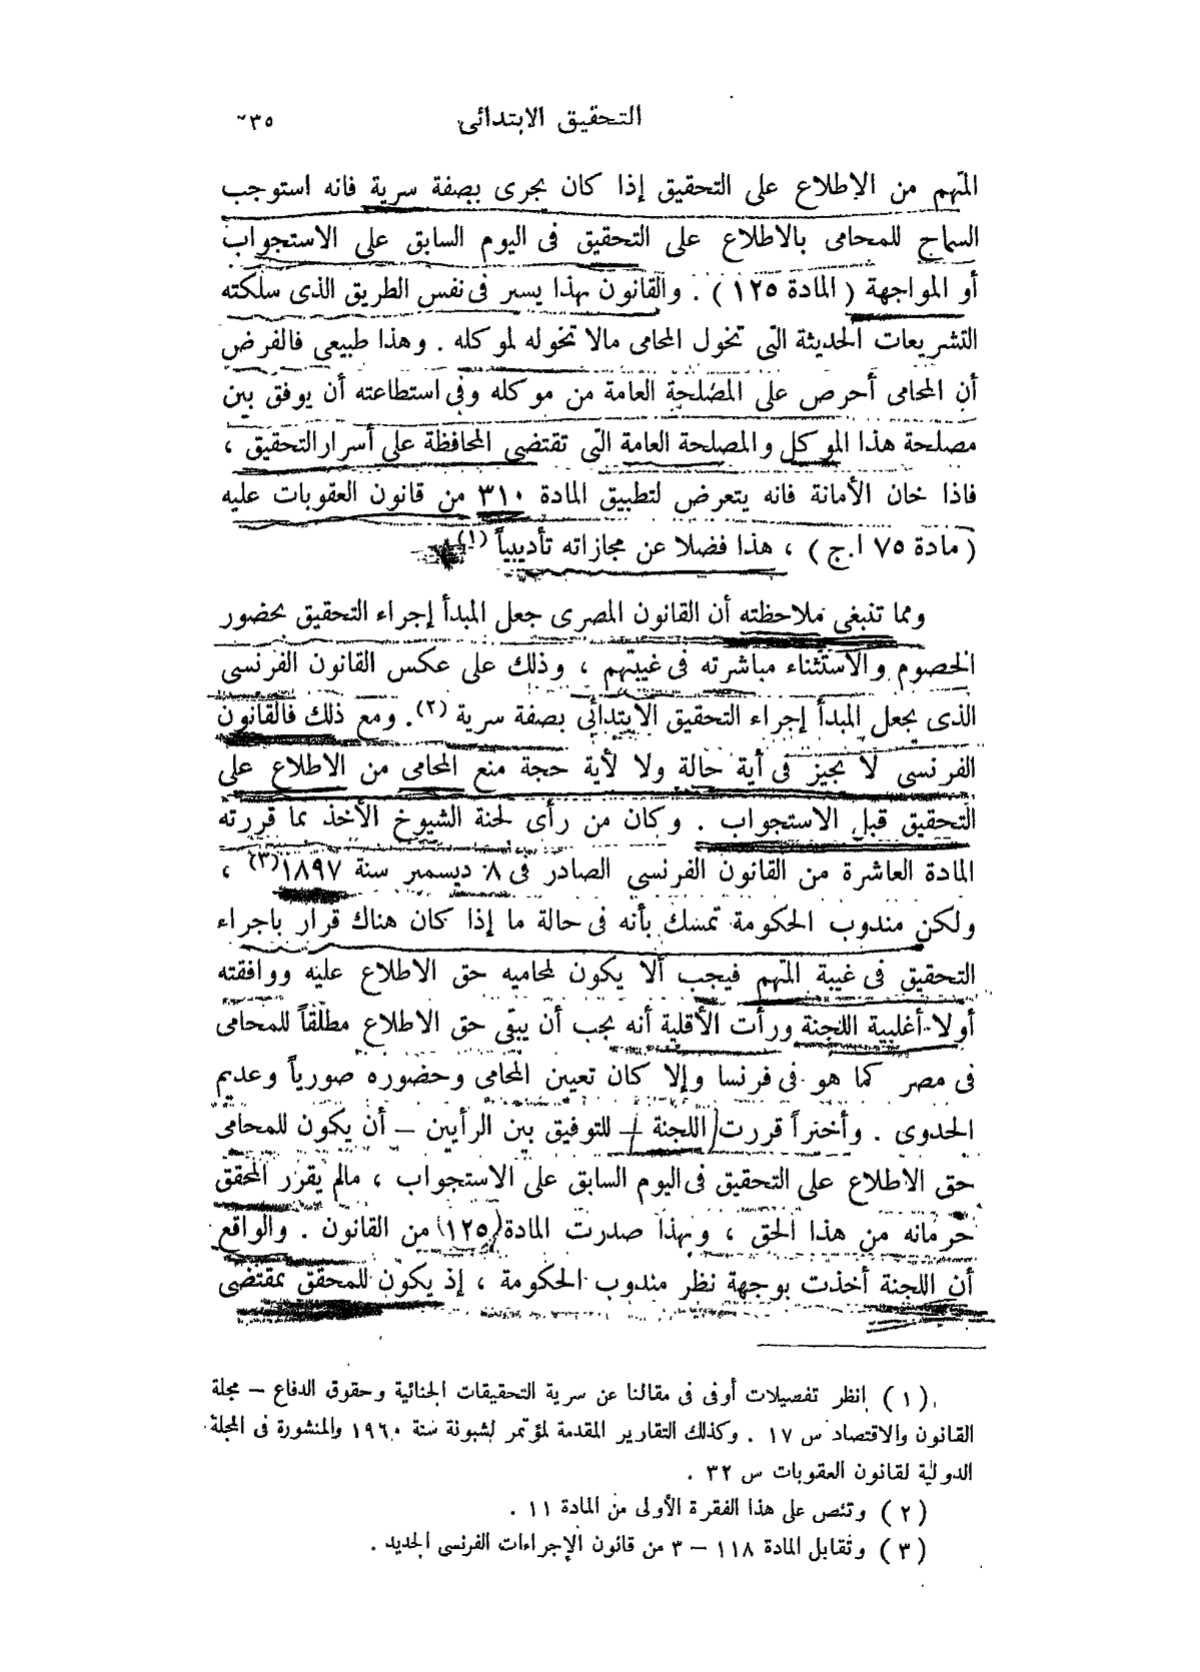 التحقيق الابتدائى ٣٥
المتهم من الإطلاع على التحقيق إذا كان يجرى بصفة سرية فانه استوجب
السماح للمحامى بالاطلاع على التحقيق فى اليوم السابق على الاستجواب
أو المواجهة ( المادة ١٢٥ ) . والقانون بهذا يسير فى نفس الطريق الذى سلكته
التشريعات الحديثة التى تخول المحامى مالا تخوله لموكله . وهذا طبيعى فالفرض
أن المحامى أحرص على المصلحة العامة من موكله وفى استطاعته أن يوفق بين
مصلحة هذا الموكل والمصلحة العامة التى تقتضى المحافظة على أسرار التحقيق ،
فاذا خان الأمانة فانه يتعرض لتطبيق المادة ٣١٠ من قانون العقوبات عليه
( مادة ٧٥ ا.ج ) ، هذا فضلا عن مجازاته تأديبياً (١)
ومما تنبغى ملاحظته أن القانون المصرى جعل المبدأ إجراء التحقيق بحضور
الخصوم والاستثناء مباشرته فى غيبتهم ، وذلك على عكس القانون الفرنسى
الذى يجعل المبدأ إجراء التحقيق الابتدائى بصفة سرية (٢) . ومع ذلك فالقانون
الفرنسى لا يجيز فى أية حالة ولا لأية حجة منع المحامى من الاطلاع على
التحقيق قبل الاستجواب . وكان من رأى لجنة الشيوخ الأخذ بما قررته
المادة العاشرة من القانون الفرنسى الصادر فى ٨ ديسمبر سنة ١٨٩٧ (٣) ،
ولكن مندوب الحكومة تمسك بأنه فى حالة ما إذا كان هناك قرار باجراء
التحقيق فى غيبة المتهم فيجب ألا يكون لمحاميه حق الاطلاع عليه ووافقته
أولا أغلبية اللجنة ورأت الأقلية أنه يجب أن يبقى حق الاطلاع مطلقاً للمحامى
فى مصر كما هو فى فرنسا وإلا كان تعيين المحامى وحضوره صورياً وعديم
الجدوى . وأخيراً قررت اللجنة – للتوفيق بين الرأيين – أن يكون للمحامى
حق الاطلاع على التحقيق فى اليوم السابق على الاستجواب ، مالم يقرر المحقق
حرمانه من هذا الحق ، وبهذا صدرت المادة (١٢٥) من القانون . والواقع
أن اللجنة أخذت بوجهة نظر مندوب الحكومة ، إذ يكون للمحقق بمقتضى
( ١ ) انظر تفصيلات أوفى فى مقالنا عن سرية التحقيقات الجنائية وحقوق الدفاع – مجلة
القانون والاقتصاد س ١٧ . وكذلك التقارير المقدمة لمؤتمر لشبونة سنة ١٩٦٠ والمنشورة فى المجلة
الدولية لقانون العقوبات س ٣٢ .
( ٢ ) وتنص على هذا الفقرة الأولى من المادة ١١ .
( ٣ ) وتقابل المادة ١١٨ – ٣ من قانون الإجراءات الفرنسى الجديد .